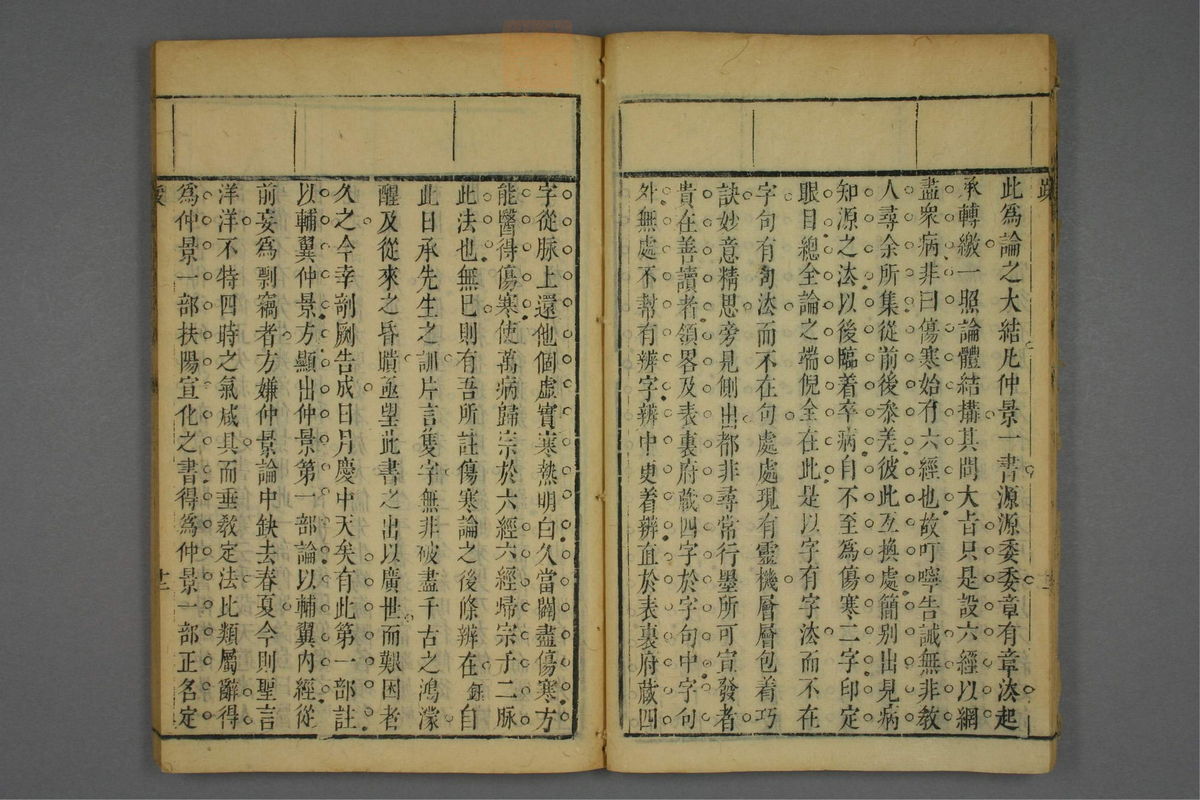 此為論之大結凡仲景一書源源委委章有章法起
承轉繳一照論體結搆其間大旨只是設六經以網
盡衆病非曰傷寒始有六經也故叮嚀告誡無非教
人尋余所集從前後叅差彼此互換處簡別出見病
知源之法以後臨着卒病自不至為傷寒二字印定
眼目總全論之端倪全在此是以字有字法而不在
字句有句法而不在句處處現有靈機層層包着巧
訣妙意精思旁見側出都非尋常行墨所可宣發者
貴在善讀者領畧及表裏府藏四字於字句中字句
外無處不幇有辨字辨中更着辨直於表裏府藏四
字從脉上還他個虛實寒熱明白久當闢盡傷寒方
能醫得傷寒使萬病歸宗於六經六經歸宗于二脉
此法也無已則有吾所註傷寒論之後條辨在餘自
此日承先生之訓片言隻字無非破盡千古之鴻濛
醒及從來之昏聵亟望此書之出以廣世而艱困者
久之今幸剞劂告成日月慶中天矣有此第一部註
以輔翼仲景方顯出仲景第一部論以輔翼內經從
前妄為剽竊者方嫌仲景論中缺去春夏今則聖言
洋洋不特四時之氣咸具而垂教定法比類屬辭得
為仲景一部扶陽宣化之書得為仲景一部正名定